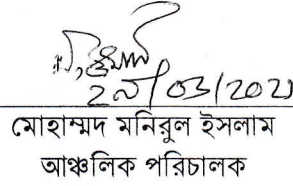 ২৯/০৩/২০২১
মোহাম্মদ মনিরুল ইসলাম
আঞ্চলিক পরিচালক